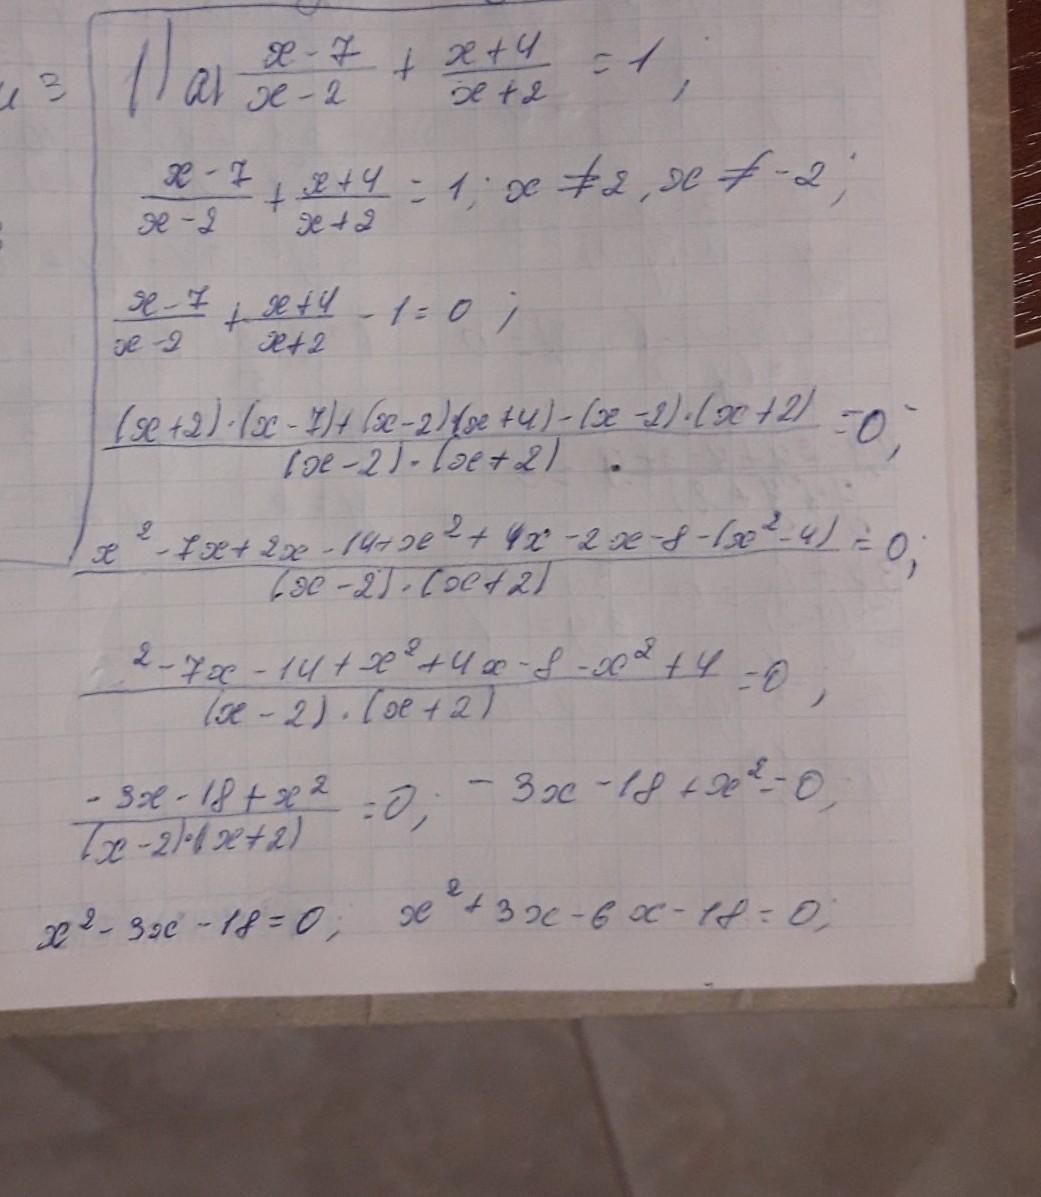 1) a) (x-7)/(x-2) + (x+4)/(x+2) = 1;
(x-7)/(x-2) + (x+4)/(x+2) = 1; x ≠ 2, x ≠ -2;
(x-7)/(x-2) + (x+4)/(x+2) - 1 = 0;
((x+2)·(x-7)+(x-2)·(x+4)-(x-2)·(x+2))/((x-2)·(x+2)) = 0;
(x²-7x+2x-14+x²+4x-2x-8-(x²-4))/((x-2)·(x+2)) = 0;
(²-7x-14+x²+4x-8-x²+4)/((x-2)·(x+2)) = 0;
(-3x-18+x²)/((x-2)·(x+2)) = 0; -3x-18+x²=0;
x²-3x-18=0; x²+3x-6x-18=0;